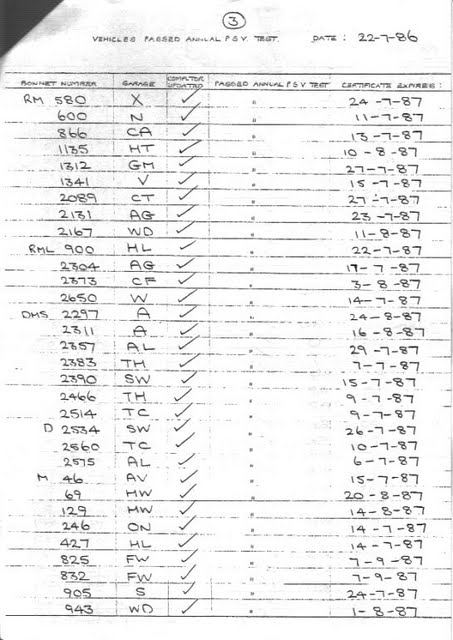 3
VEHICLES PASSED ANNUAL P.S.V. TEST. DATE : 22-7-86
BONNET NUMBER GARAGE COMPUTOR UPDATED PASSED ANNUAL P S V TEST CERTIFICATE EXPIRES :
RM 580 X ✓ " 24-7-87
600 N ✓ " 11-7-87
866 CA ✓ " 13-7-87
1135 HT ✓ " 10-8-87
1312 GM ✓ " 27-7-87
1341 V ✓ " 15-7-87
2089 CT ✓ " 27-7-87
2131 AG ✓ " 23-7-87
2167 WD ✓ " 11-8-87
RML 900 HL ✓ " 22-7-87
2304 AG ✓ " 17-7-87
2373 CF ✓ " 3-8-87
2650 W ✓ " 14-7-87
DMS 2297 A ✓ " 24-8-87
2311 A ✓ " 16-8-87
2357 AL ✓ " 29-7-87
2383 TH ✓ " 7-7-87
2390 SW ✓ " 15-7-87
2466 TH ✓ " 9-7-87
2514 TC ✓ " 9-7-87
D 2534 SW ✓ " 26-7-87
2560 TC ✓ " 10-7-87
2575 AL ✓ " 6-7-87
M 46 AV ✓ " 15-7-87
69 HW ✓ " 20-8-87
129 HW ✓ " 14-8-87
246 ON ✓ " 14-7-87
427 HL ✓ " 14-7-87
825 FW ✓ " 7-9-87
832 FW ✓ " 7-9-87
905 S ✓ " 24-7-87
943 WD ✓ " 1-8-87